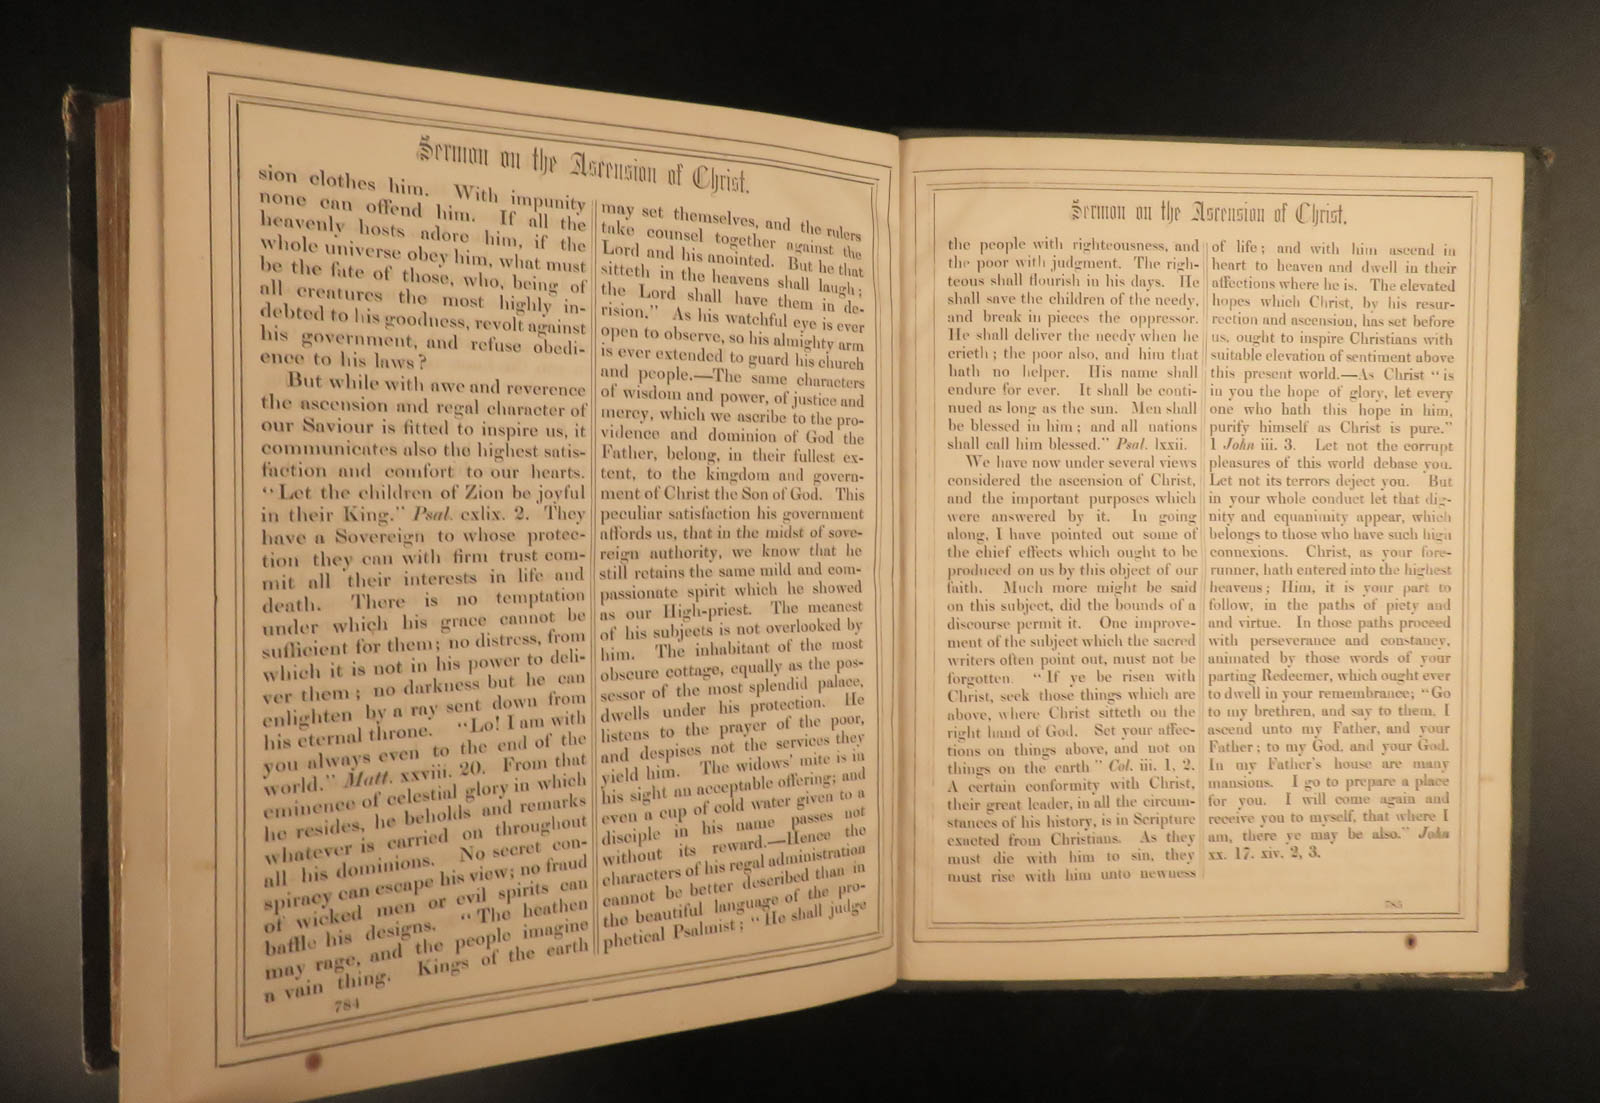 Sermon on the Ascension of Christ.
sion clothes him. With impunity
none can offend him. If all the
heavenly hosts adore him, if the
whole universe obey him, what must
be the fate of those, who, being of
all creatures the most highly in-
debted to his goodness, revolt against
his government, and refuse obedi-
ence to his laws?
But while with awe and reverence
the ascension and regal character of
our Saviour is fitted to inspire us, it
communicates also the highest satis-
faction and comfort to our hearts.
"Let the children of Zion be joyful
in their King." Psal. cxlix. 2. They
have a Sovereign to whose protec-
tion they can with firm trust com-
mit all their interests in life and
death. There is no temptation
under which his grace cannot be
sufficient for them; no distress, from
which it is not in his power to deli-
ver them; no darkness but he can
enlighten by a ray sent down from
his eternal throne. "Lo! I am with
you always even to the end of the
world." Matt. xxviii. 20. From that
eminence of celestial glory in which
he resides, he beholds and remarks
whatever is carried on throughout
all his dominions. No secret con-
spiracy can escape his view; no fraud
of wicked men or evil spirits can
baffle his designs. "The heathen
may rage, and the people imagine
a vain thing. Kings of the earth
784
may set themselves, and the rulers
take counsel together against the
Lord and his anointed. But he that
sitteth in the heavens shall laugh;
the Lord shall have them in de-
rision." As his watchful eye is ever
open to observe, so his almighty arm
is ever extended to guard his church
and people.—The same characters
of wisdom and power, of justice and
mercy, which we ascribe to the pro-
vidence and dominion of God the
Father, belong, in their fullest ex-
tent, to the kingdom and govern-
ment of Christ the Son of God. This
peculiar satisfaction his government
affords us, that in the midst of sove-
reign authority, we know that he
still retains the same mild and com-
passionate spirit which he showed
as our High-priest. The meanest
of his subjects is not overlooked by
him. The inhabitant of the most
obscure cottage, equally as the pos-
sessor of the most splendid palace,
dwells under his protection. He
listens to the prayer of the poor,
and despises not the services they
yield him. The widows' mite is in
his sight an acceptable offering; and
even a cup of cold water given to a
disciple in his name passes not
without its reward.—Hence the
characters of his regal administration
cannot be better described than in
the beautiful language of the pro-
phetical Psalmist; "He shall judge
Sermon on the Ascension of Christ.
the people with righteousness, and
the poor with judgment. The righ-
teous shall flourish in his days. He
shall save the children of the needy,
and break in pieces the oppressor.
He shall deliver the needy when he
crieth; the poor also, and him that
hath no helper. His name shall
endure for ever. It shall be conti-
nued as long as the sun. Men shall
be blessed in him; and all nations
shall call him blessed." Psal. lxxii.
We have now under several views
considered the ascension of Christ,
and the important purposes which
were answered by it. In going
along, I have pointed out some of
the chief effects which ought to be
produced on us by this object of our
faith. Much more might be said
on this subject, did the bounds of a
discourse permit it. One improve-
ment of the subject which the sacred
writers often point out, must not be
forgotten. "If ye be risen with
Christ, seek those things which are
above, where Christ sitteth on the
right hand of God. Set your affec-
tions on things above, and not on
things on the earth" Col. iii. 1, 2.
A certain conformity with Christ,
their great leader, in all the circum-
stances of his history, is in Scripture
exacted from Christians. As they
must die with him to sin, they
must rise with him unto newness
of life; and with him ascend in
heart to heaven and dwell in their
affections where he is. The elevated
hopes which Christ, by his resur-
rection and ascension, has set before
us, ought to inspire Christians with
suitable elevation of sentiment above
this present world.—As Christ "is
in you the hope of glory, let every
one who hath this hope in him,
purify himself as Christ is pure."
1 John iii. 3. Let not the corrupt
pleasures of this world debase you.
Let not its terrors deject you. But
in your whole conduct let that dig-
nity and equanimity appear, which
belongs to those who have such high
connexions. Christ, as your fore-
runner, hath entered into the highest
heavens; Him, it is your part to
follow, in the paths of piety and
and virtue. In those paths proceed
with perseverance and constancy,
animated by those words of your
parting Redeemer, which ought ever
to dwell in your remembrance; "Go
to my brethren, and say to them, I
ascend unto my Father, and your
Father; to my God, and your God.
In my Father's house are many
mansions. I go to prepare a place
for you. I will come again and
receive you to myself, that where I
am, there ye may be also." John
xx. 17. xiv. 2, 3.
785